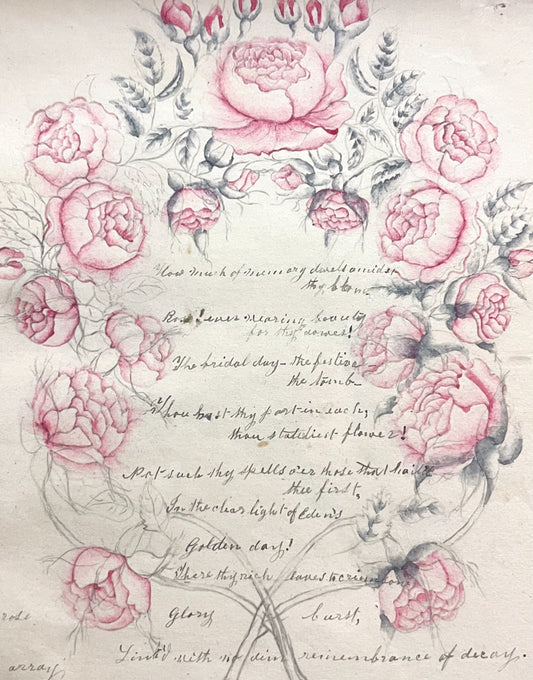 How much of memory dwells amids
thy bloom
Rose! ever wearing beauty
for thy dower!
The bridal day - the festive
the tomb -
Thou hast thy part in each,
thou stateliest flower!
Not such thy spells o'er those that hail'd
thee first,
In the clear light of Edens
Golden day!
There thy rich leaves to crimson
rose
Glory burst,
Link'd with no dim remembrance of decay.
array